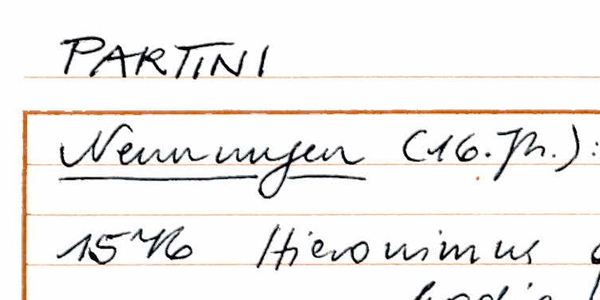 PARTINI
Nennungen (16. Jh.):
1546 Hieronimus